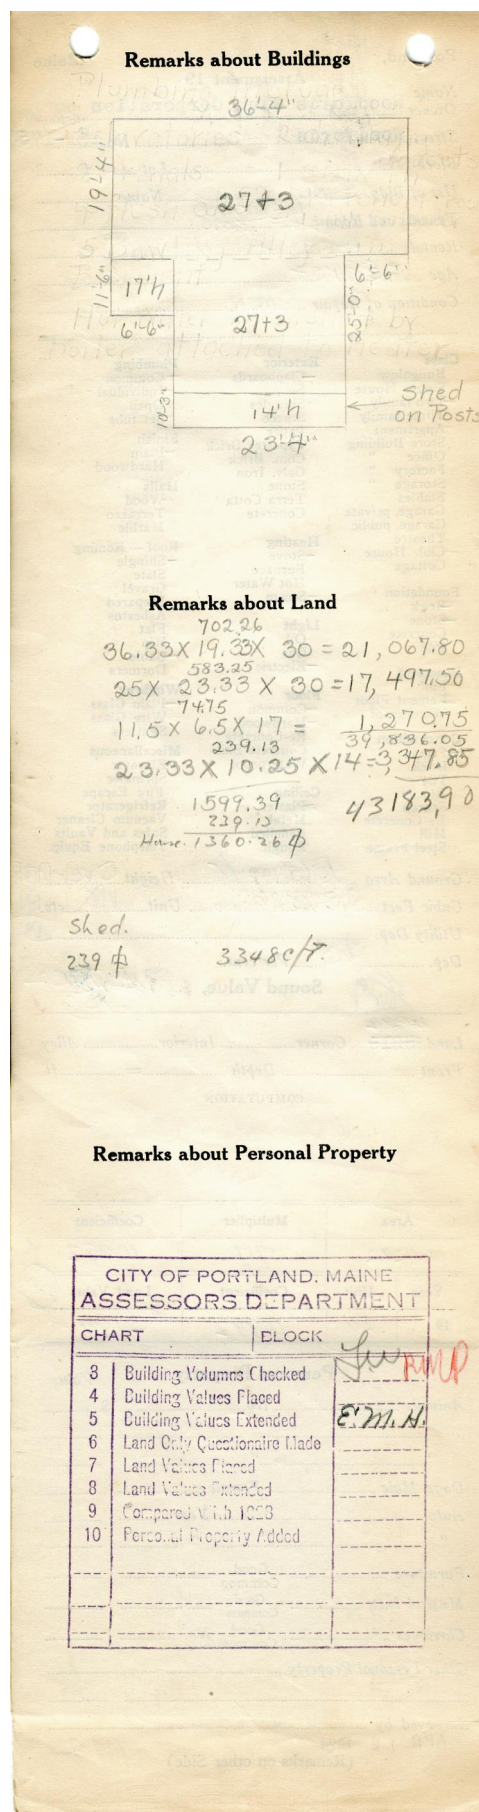 Remarks about Buildings
36'-4"
19'-4"
27+3
11'-6"
17'h
6'-6"
6'-6"
25'-0"
27+3
10'-3"
14'h
Shed
on Posts
23'-4"
Remarks about Land
702.26
36.33 X 19.33 X 30 = 21,067.80
583.25
25 X 23.33 X 30 = 17,497.50
74.75
11.5 X 6.5 X 17 = 1,270.75
39,836.05
239.13
23.33 X 10.25 X 14 = 3,347.85
43183,90
1599.39
239.13
House. 1360.26
Shed.
239
3348 c/f.
Remarks about Personal Property
CITY OF PORTLAND, MAINE
ASSESSORS DEPARTMENT
CHART BLOCK
3 Building Volumns Checked
4 Building Values Placed
5 Building Values Extended E.M.H.
6 Land Only Questionaire Made
7 Land Values Placed
8 Land Values Extended
9 Compared With
10 Personal Property Added